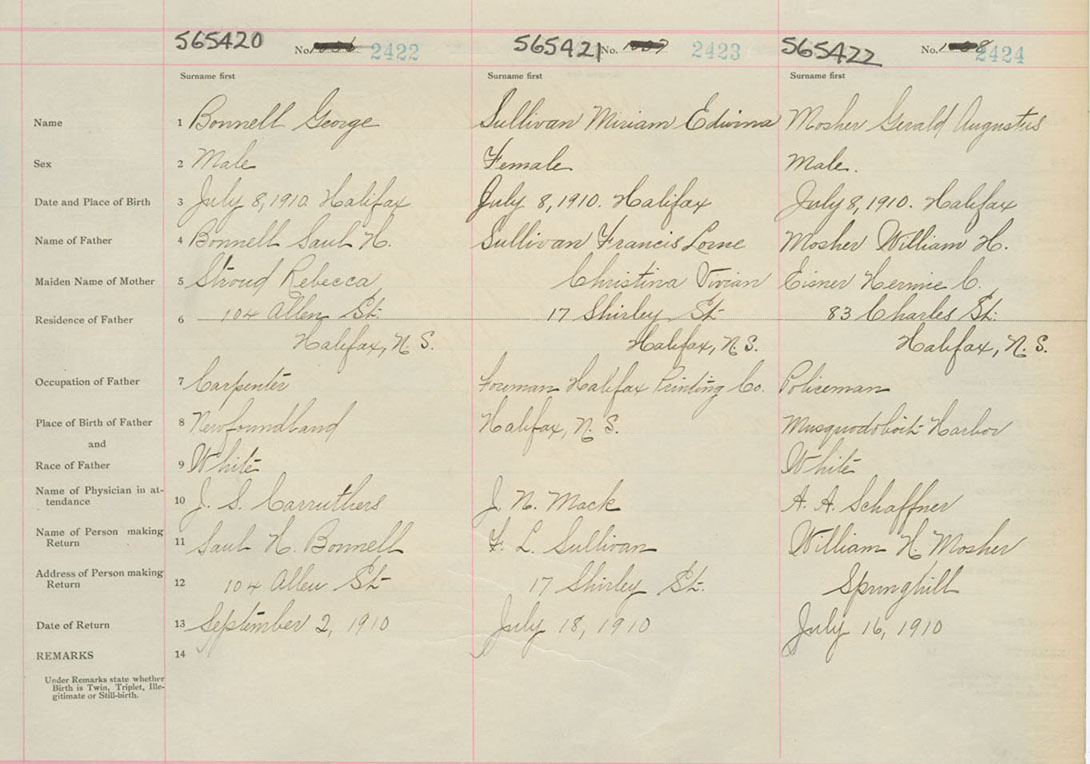 565420 No. 2422 565421 No. 2423 565422 No. 2424
Surname first Surname first Surname first
Name 1 Bonnell George Sullivan Miriam Edwina Mosher Gerald Augustus
Sex 2 Male Female Male.
Date and Place of Birth 3 July 8, 1910 Halifax July 8, 1910. Halifax July 8, 1910. Halifax
Name of Father 4 Bonnell Saul H. Sullivan Francis Lorne Mosher William H.
Maiden Name of Mother 5 Stroud Rebecca Christina Vivian Eisner Hermie C.
Residence of Father 6 104 Allen St. 17 Shirley St. 83 Charles St.
Halifax, N.S. Halifax, N.S. Halifax, N.S.
Occupation of Father 7 Carpenter Foreman Halifax Printing Co. Policeman
Place of Birth of Father 8 Newfoundland Halifax, N.S. Musquodoboit Harbor
and
Race of Father 9 White White
Name of Physician in at-
tendance 10 J. S. Carruthers J. N. Mack A. A. Schaffner
Name of Person making
Return 11 Saul H. Bonnell F. L. Sullivan William H. Mosher
Address of Person making
Return 12 104 Allen St. 17 Shirley St. Springhill
Date of Return 13 September 2, 1910 July 18, 1910 July 16, 1910
REMARKS 14
Under Remarks state whether
Birth is Twin, Triplet, Ille-
gitimate or Still-birth.